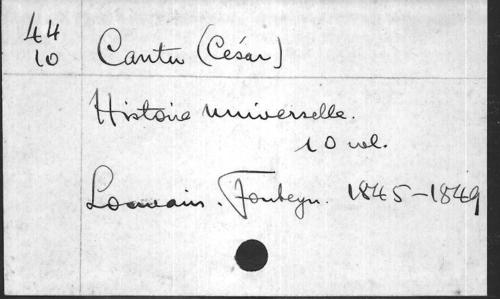 44
10
Cantu (César)
Histoire universelle.
10 vol.
Louvain. Fonteyn. 1845-1849